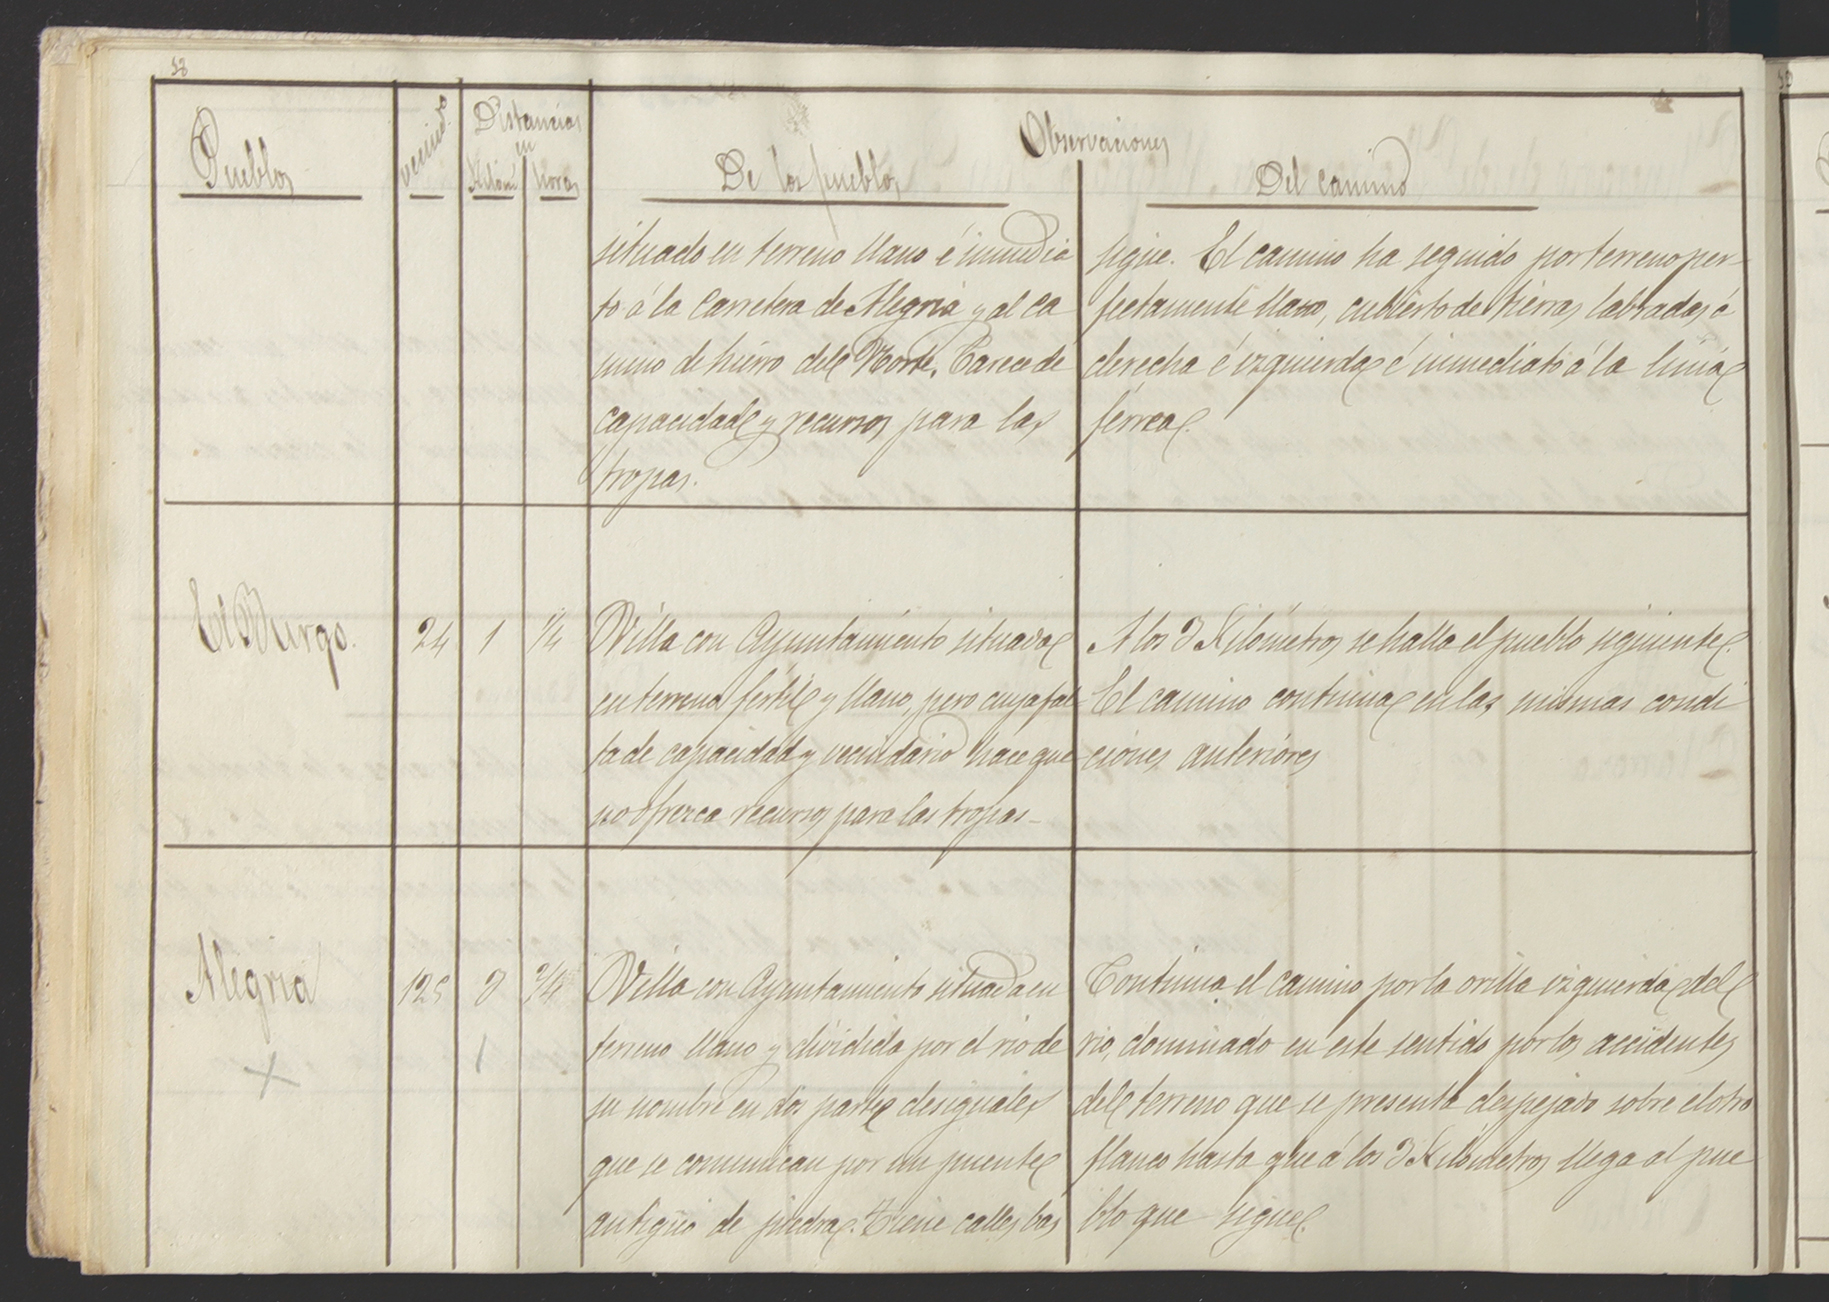 38
Pueblos
vecind.º
Distancias
en
Kilóm
horas
Observaciones
De los pueblos
Del camino
situado en terreno llano é inmedia
to á la carretera de Alegria y al ca
mino de hierro del Norte. Carece de
capacidad y recursos para las
tropas.
sigue. El camino ha seguido por terreno per-
fectamente llano, cubierto de tierras labradas á
derecha é izquierda é inmediato á la linea
férrea.
El Burgo.
24
1
1/4
Villa con Ayuntamiento situada
en terreno fertil y llano, pero cuya fal
ta de capacidad y vecindario hace que
no ofrezca recursos para las tropas
A los 3 Kilómetros se halla el pueblo siguiente.
El camino continua en las mismas condi
ciones anteriores
Alegria
125
3
3/4
1
Villa con Ayuntamiento situada en
terreno llano y dividida por el rio de
su nombre en dos partes desiguales
que se comunican por un puente
antiguo de piedra. Tiene calles bas
Continua el camino por la orilla izquierda del
rio, dominado en este sentido por los accidentes
del terreno que se presenta despejado sobre el otro
flanco hasta que á los 3 Kilómetros llega al pue
blo que sigue.